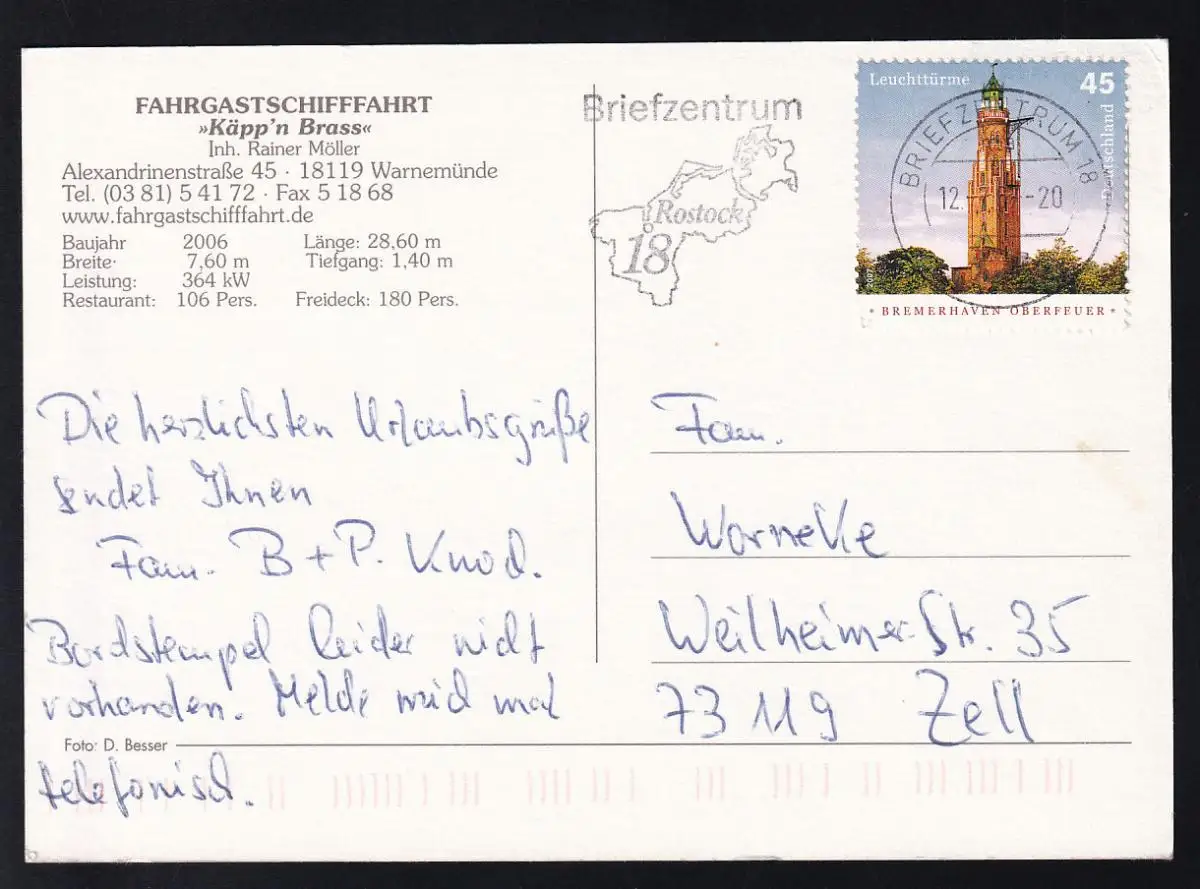 FAHRGASTSCHIFFFAHRT
»Käpp'n Brass«
Inh. Rainer Möller
Alexandrinenstraße 45 · 18119 Warnemünde
Tel. (03 81) 5 41 72 · Fax 5 18 68
www.fahrgastschifffahrt.de
Baujahr 2006 Länge: 28,60 m
Breite· 7,60 m Tiefgang: 1,40 m
Leistung: 364 kW
Restaurant: 106 Pers. Freideck: 180 Pers.
Briefzentrum
Rostock
18
Leuchttürme 45
Deutschland
BRIEFZENTRUM 18
12. -20
* BREMERHAVEN OBERFEUER *
Die herzlichsten Urlaubsgrüße
sendet Ihnen
Fam. B + P. Knod.
Bordstempel leider nicht
vorhanden. Melde mich mal
telefonisch.
Foto: D. Besser
Fam.
Warneke
Weilheimer-Str. 35
73119 Zell